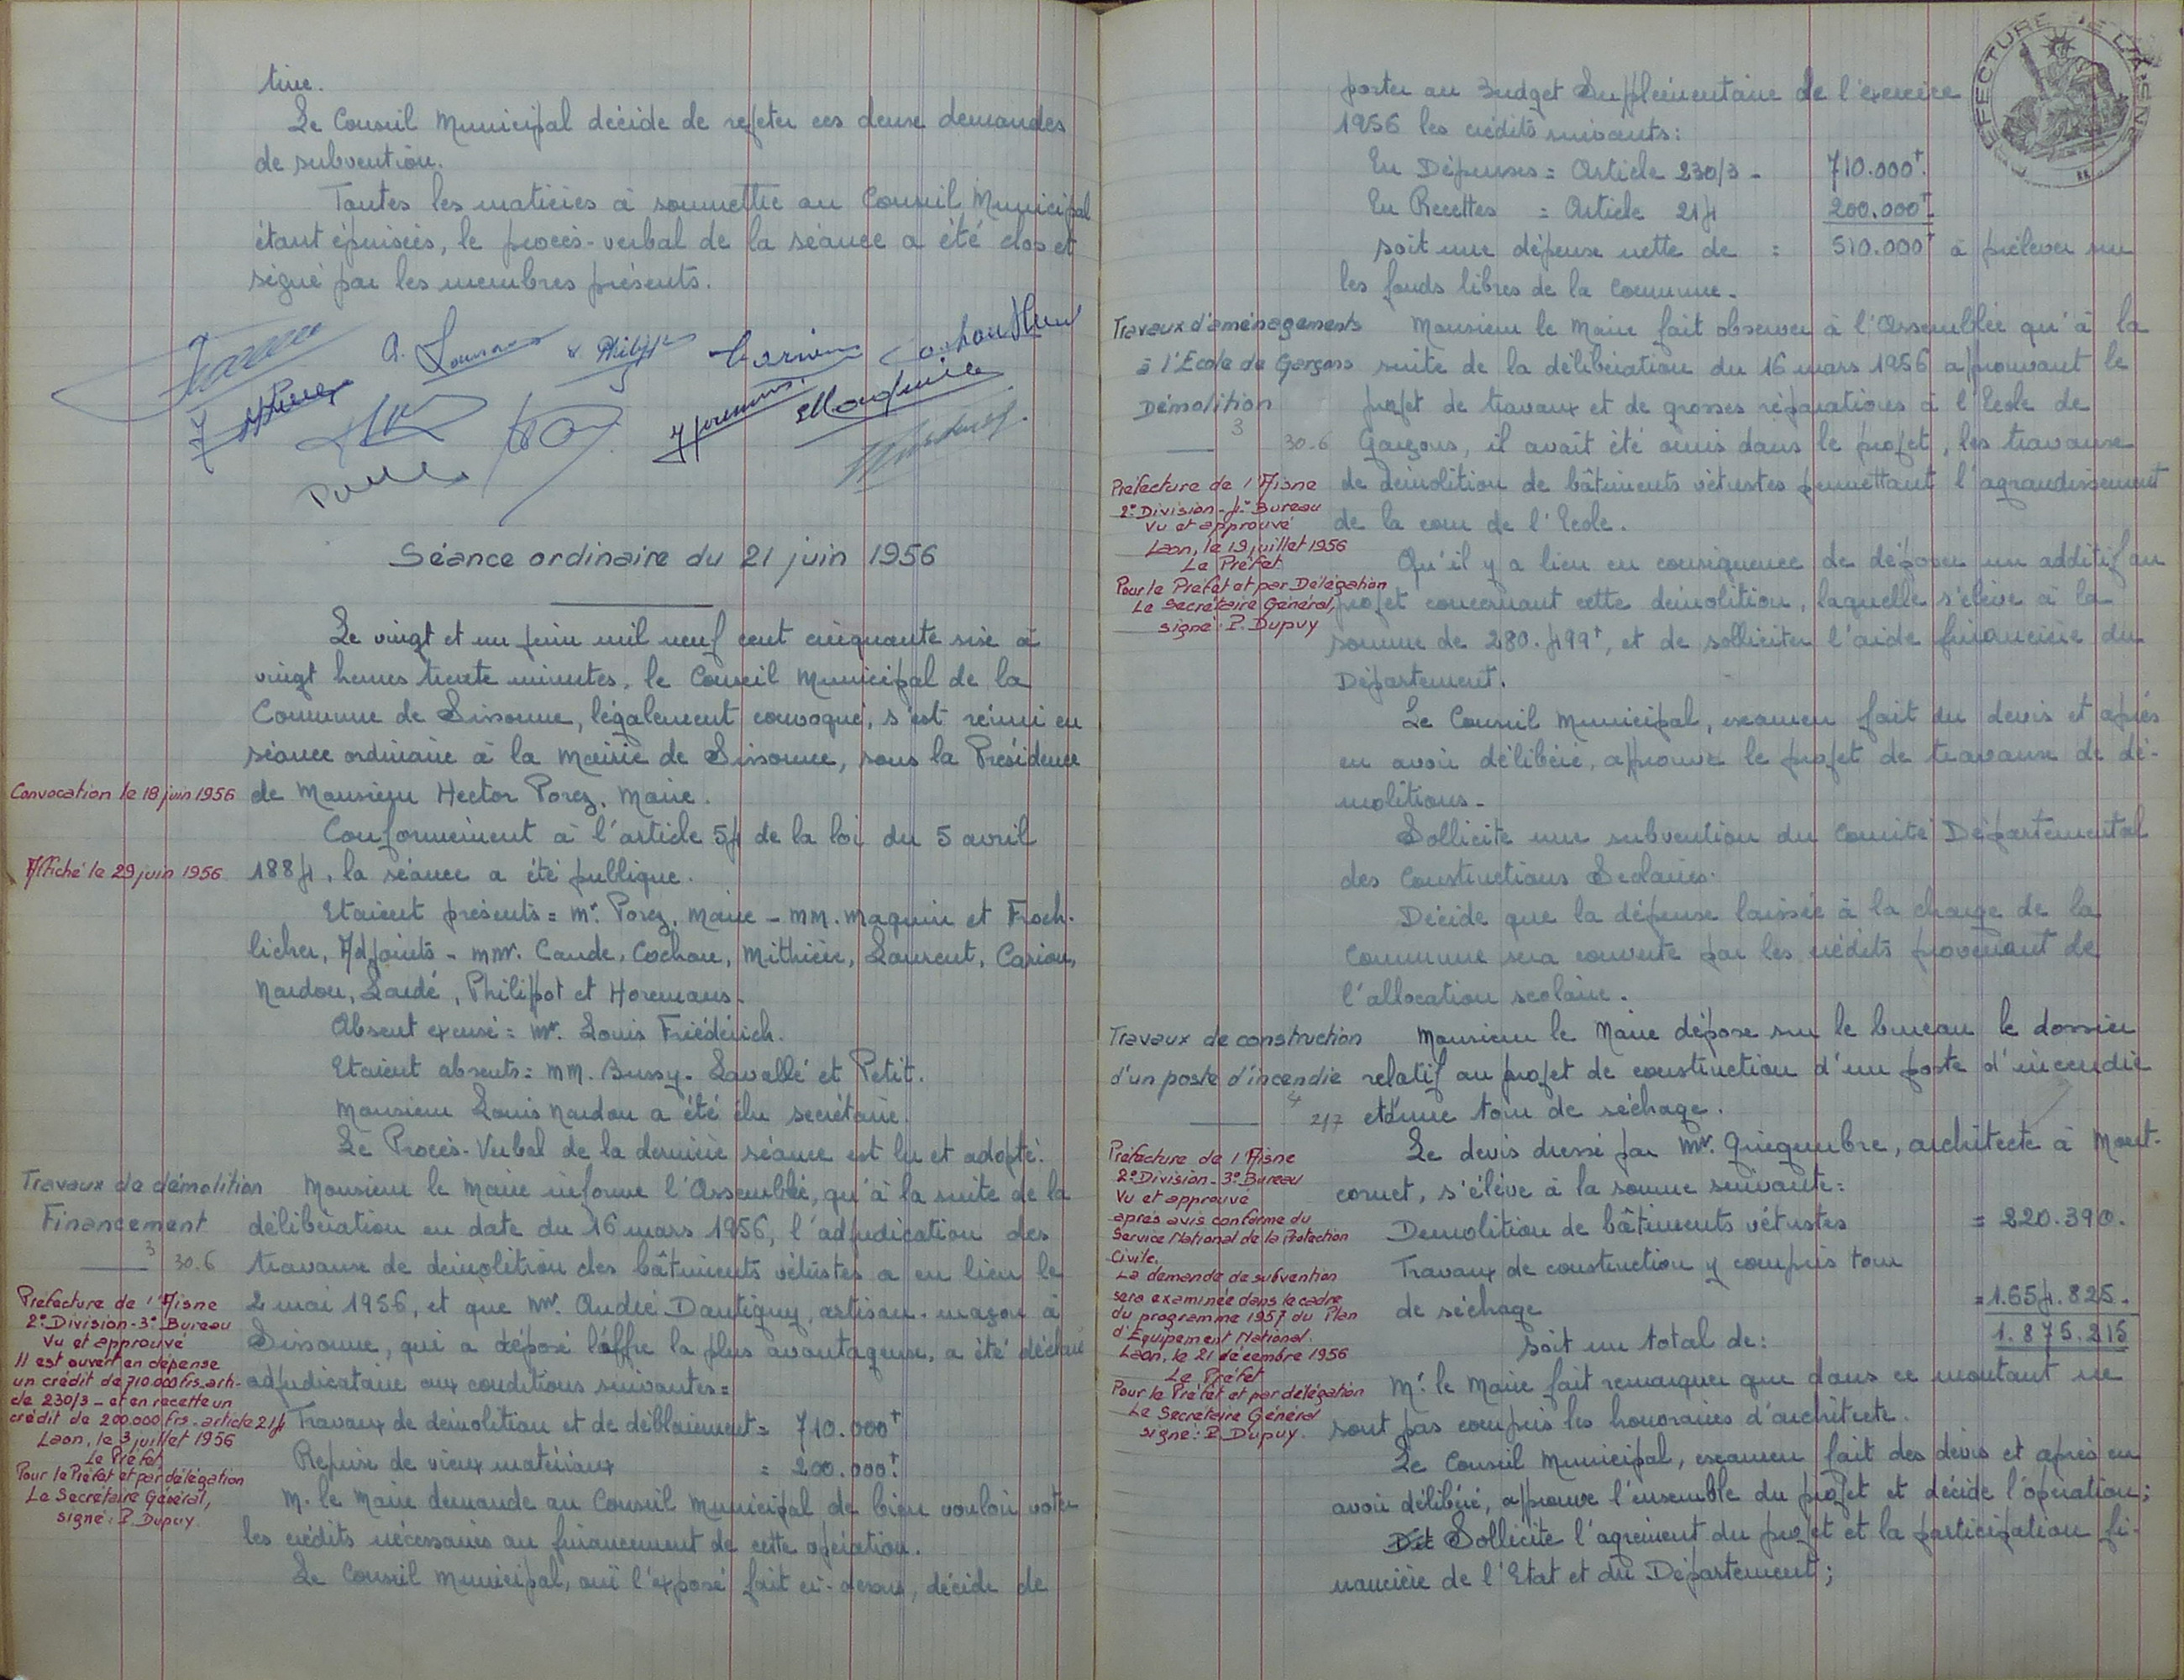 tive.
Le Conseil Municipal décide de rejeter ces deux demandes
de subvention.
Toutes les matières à soumettre au Conseil Municipal
étant épuisées, le procès-verbal de la séance a été clos et
signé par les membres présents.
Séance ordinaire du 21 juin 1956
Le vingt et un juin mil neuf cent cinquante six à
vingt heures trente minutes, le Conseil Municipal de la
Commune de Sissonne, légalement convoqué, s'est réuni en
séance ordinaire à la Mairie de Sissonne, sous la Présidence
Convocation le 18 juin 1956
de Monsieur Hector Porez, Maire.
Conformément à l'article 54 de la loi du 5 avril
Affiché le 29 juin 1956
1884, la séance a été publique.
Etaient présents = Mr. Porez, Maire - MM. Maquin et Froeh-
licher, Adjoints - MM. Caude, Cochon, Mithière, Laurent, Cariou,
Nardou, Lardé, Philippot et Horemans.
Absent excusé = Mr. Louis Friédérich.
Etaient absents = MM. Bussy - Lavallé et Petit.
Monsieur Louis Nardou a été élu secrétaire.
Le Procès-Verbal de la dernière séance est lu et adopté.
Travaux de démolition
Financement
3
30.6
Monsieur le Maire informe l'Assemblée, qu'à la suite de la
délibération en date du 16 mars 1956, l'adjudication des
travaux de démolition des bâtiments vétustes a eu lieu le
2 mai 1956, et que Mr. André Dantigny, artisan-maçon à
Sissonne, qui a déposé l'offre la plus avantageuse, a été déclaré
adjudicataire aux conditions suivantes =
Travaux de démolition et de déblaiement = 710.000f
Reprise de vieux matériaux = 200.000f.
M. le Maire demande au Conseil Municipal de bien vouloir voter
les crédits nécessaires au financement de cette opération.
Le Conseil Municipal, ouï l'exposé fait ci-dessus, décide de
Préfecture de l'Aisne
2e Division - 3e Bureau
Vu et approuvé
Il est ouvert en dépense
un crédit de 710.000 frs. arti-
cle 230/3 - et en recette un
crédit de 200.000 frs. article 214
Laon, le 3 juillet 1956
Le Préfet
Pour le Préfet et par délégation
Le Secrétaire Général,
signé : P. Dupuy
PREFECTURE DE L'AISNE
porter au Budget Supplémentaire de l'exercice
1956 les crédits suivants :
En Dépenses = Article 230/3 - 710.000f.
En Recettes = Article 214 200.000f.
soit une dépense nette de : 510.000f à prélever sur
les fonds libres de la Commune.
Travaux d'aménagements
à l'Ecole de Garçons
Démolition
3
30.6
Monsieur le Maire fait observer à l'Assemblée qu'à la
suite de la délibération du 16 mars 1956 approuvant le
projet de travaux et de grosses réparations à l'Ecole de
Garçons, il avait été omis dans le projet, les travaux
de démolition de bâtiments vétustes permettant l'agrandissement
de la cour de l'Ecole.
Qu'il y a lieu en conséquence de déposer un additif au
projet concernant cette démolition, laquelle s'élève à la
somme de 280.499f, et de solliciter l'aide financière du
Département.
Préfecture de l'Aisne
2e Division - 4e Bureau
Vu et approuvé
Laon, le 19 juillet 1956
Le Préfet
Pour le Préfet et par Délégation
Le Secrétaire Général,
signé : P. Dupuy
Le Conseil Municipal, examen fait du devis et après
en avoir délibéré, approuve le projet de travaux de dé-
molitions.
Sollicite une subvention du Comité Départemental
des Constructions Scolaires.
Décide que la dépense laissée à la charge de la
Commune sera couverte par les crédits provenant de
l'allocation scolaire.
Travaux de construction
d'un poste d'incendie
4
2/7
Monsieur le Maire dépose sur le bureau le dossier
relatif au projet de construction d'un poste d'incendie
et d'une tour de séchage.
Le devis dressé par Mr. Quequembre, architecte à Mont-
cornet, s'élève à la somme suivante :
Demolition de bâtiments vétustes = 220.390.
Travaux de construction y compris tour
de séchage = 1.654.825.
soit un total de : 1.875.215
Mr. le Maire fait remarquer que dans ce montant ne
sont pas compris les honoraires d'architecte.
Le Conseil Municipal, examen fait des devis et après en
avoir délibéré, approuve l'ensemble du projet et décide l'opération ;
Sollicite l'agrément du projet et la participation fi-
nancière de l'Etat et du Département ;
Préfecture de l'Aisne
2e Division - 3e Bureau
Vu et approuvé
après avis conforme du
Service National de la Protection
Civile.
La demande de subvention
sera examinée dans le cadre
du programme 1957 du Plan
d'Equipement National.
Laon, le 21 décembre 1956
Le Préfet
Pour le Préfet et par délégation
Le Secrétaire Général
signé : P. Dupuy.